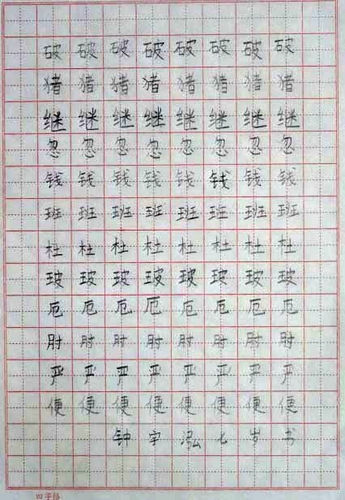 破 破 破 破 破 破 破 破
猪 猪 猪 猪 猪 猪 猪 猪
继 继 继 继 继 继 继 继
忽 忽 忽 忽 忽 忽 忽 忽
钱 钱 钱 钱 钱 钱 钱 钱
班 班 班 班 班 班 班 班
杜 杜 杜 杜 杜 杜 杜 杜
玻 玻 玻 玻 玻 玻 玻 玻
厄 厄 厄 厄 厄 厄 厄 厄
肘 肘 肘 肘 肘 肘 肘 肘
严 严 严 严 严 严 严 严
便 便 便 便 便 便 便 便
钟 宇 泓 七 岁 书